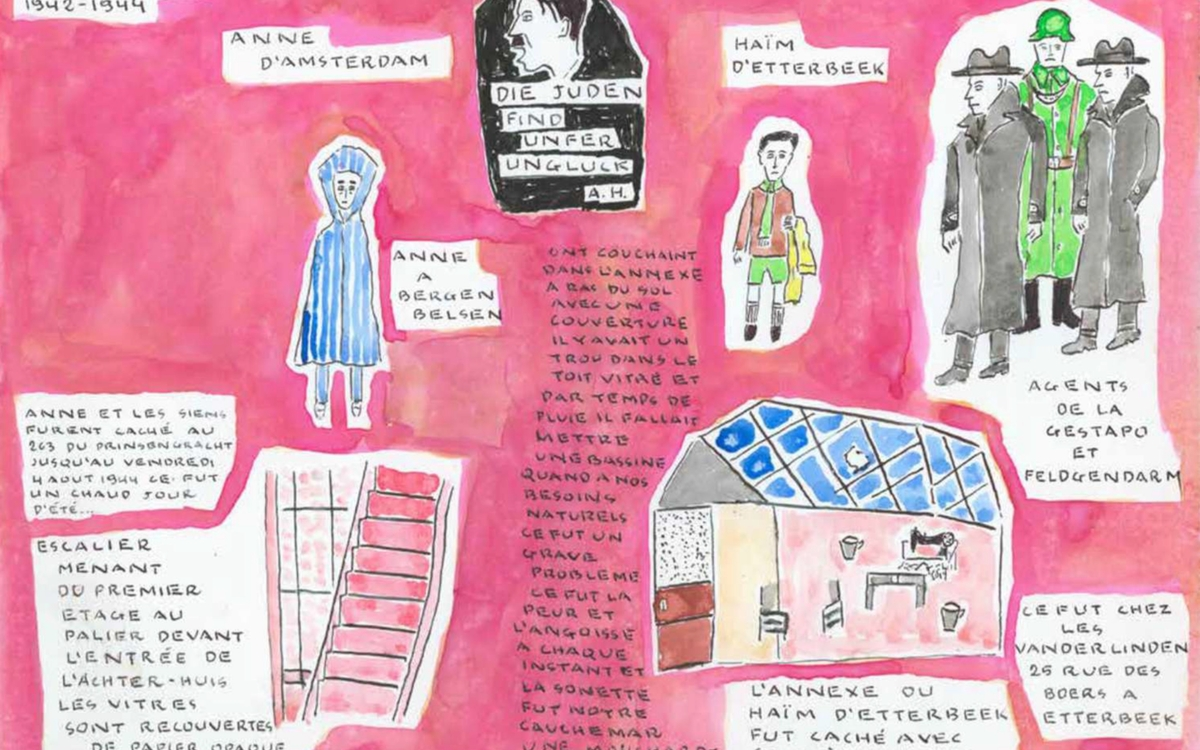 1942-1944
ANNE
D'AMSTERDAM
DIE JUDEN
FIND
UNFER
UNGLUCK
A.H.
HAÏM
D'ETTERBEEK
ANNE
A
BERGEN
BELSEN
AGENTS
DE LA
GESTAPO
ET
FELDGENDARM
ANNE ET LES SIENS
FURENT CACHÉ AU
263 DU PRINSENGRACHT
JUSQU'AU VENDREDI
4 AOUT 1944 CE. FUT
UN CHAUD JOUR
D'ÉTÉ...
ESCALIER
MENANT
DU PREMIER
ETAGE AU
PALIER DEVANT
L'ENTRÉE DE
L'ACHTER-HUIS
LES VITRES
SONT RECOUVERTES
DE PAPIER OPAQUE
ONT COUCHAINT
DANS L'ANNEXE
A RAS DU SOL
AVEC UNE
COUVERTURE
IL Y AVAIT UN
TROU DANS LE
TOIT VITRÉ ET
PAR TEMPS DE
PLUIE IL FALLAIT
METTRE
UNE BASSINE
QUAND A NOS
BESOINS
NATURELS
CE FUT UN
GRAVE
PROBLEME
CE FUT LA
PEUR ET
L'ANGOISSE
A CHAQUE
INSTANT ET
LA SONETTE
FUT NOTRE
CAUCHEMAR
UNE
L'ANNEXE OU
HAÏM D'ETTERBEEK
FUT CACHÉ AVEC
CE FUT CHEZ
LES
VANDERLINDEN
25 RUE DES
BOERS A
ETTERBEEK